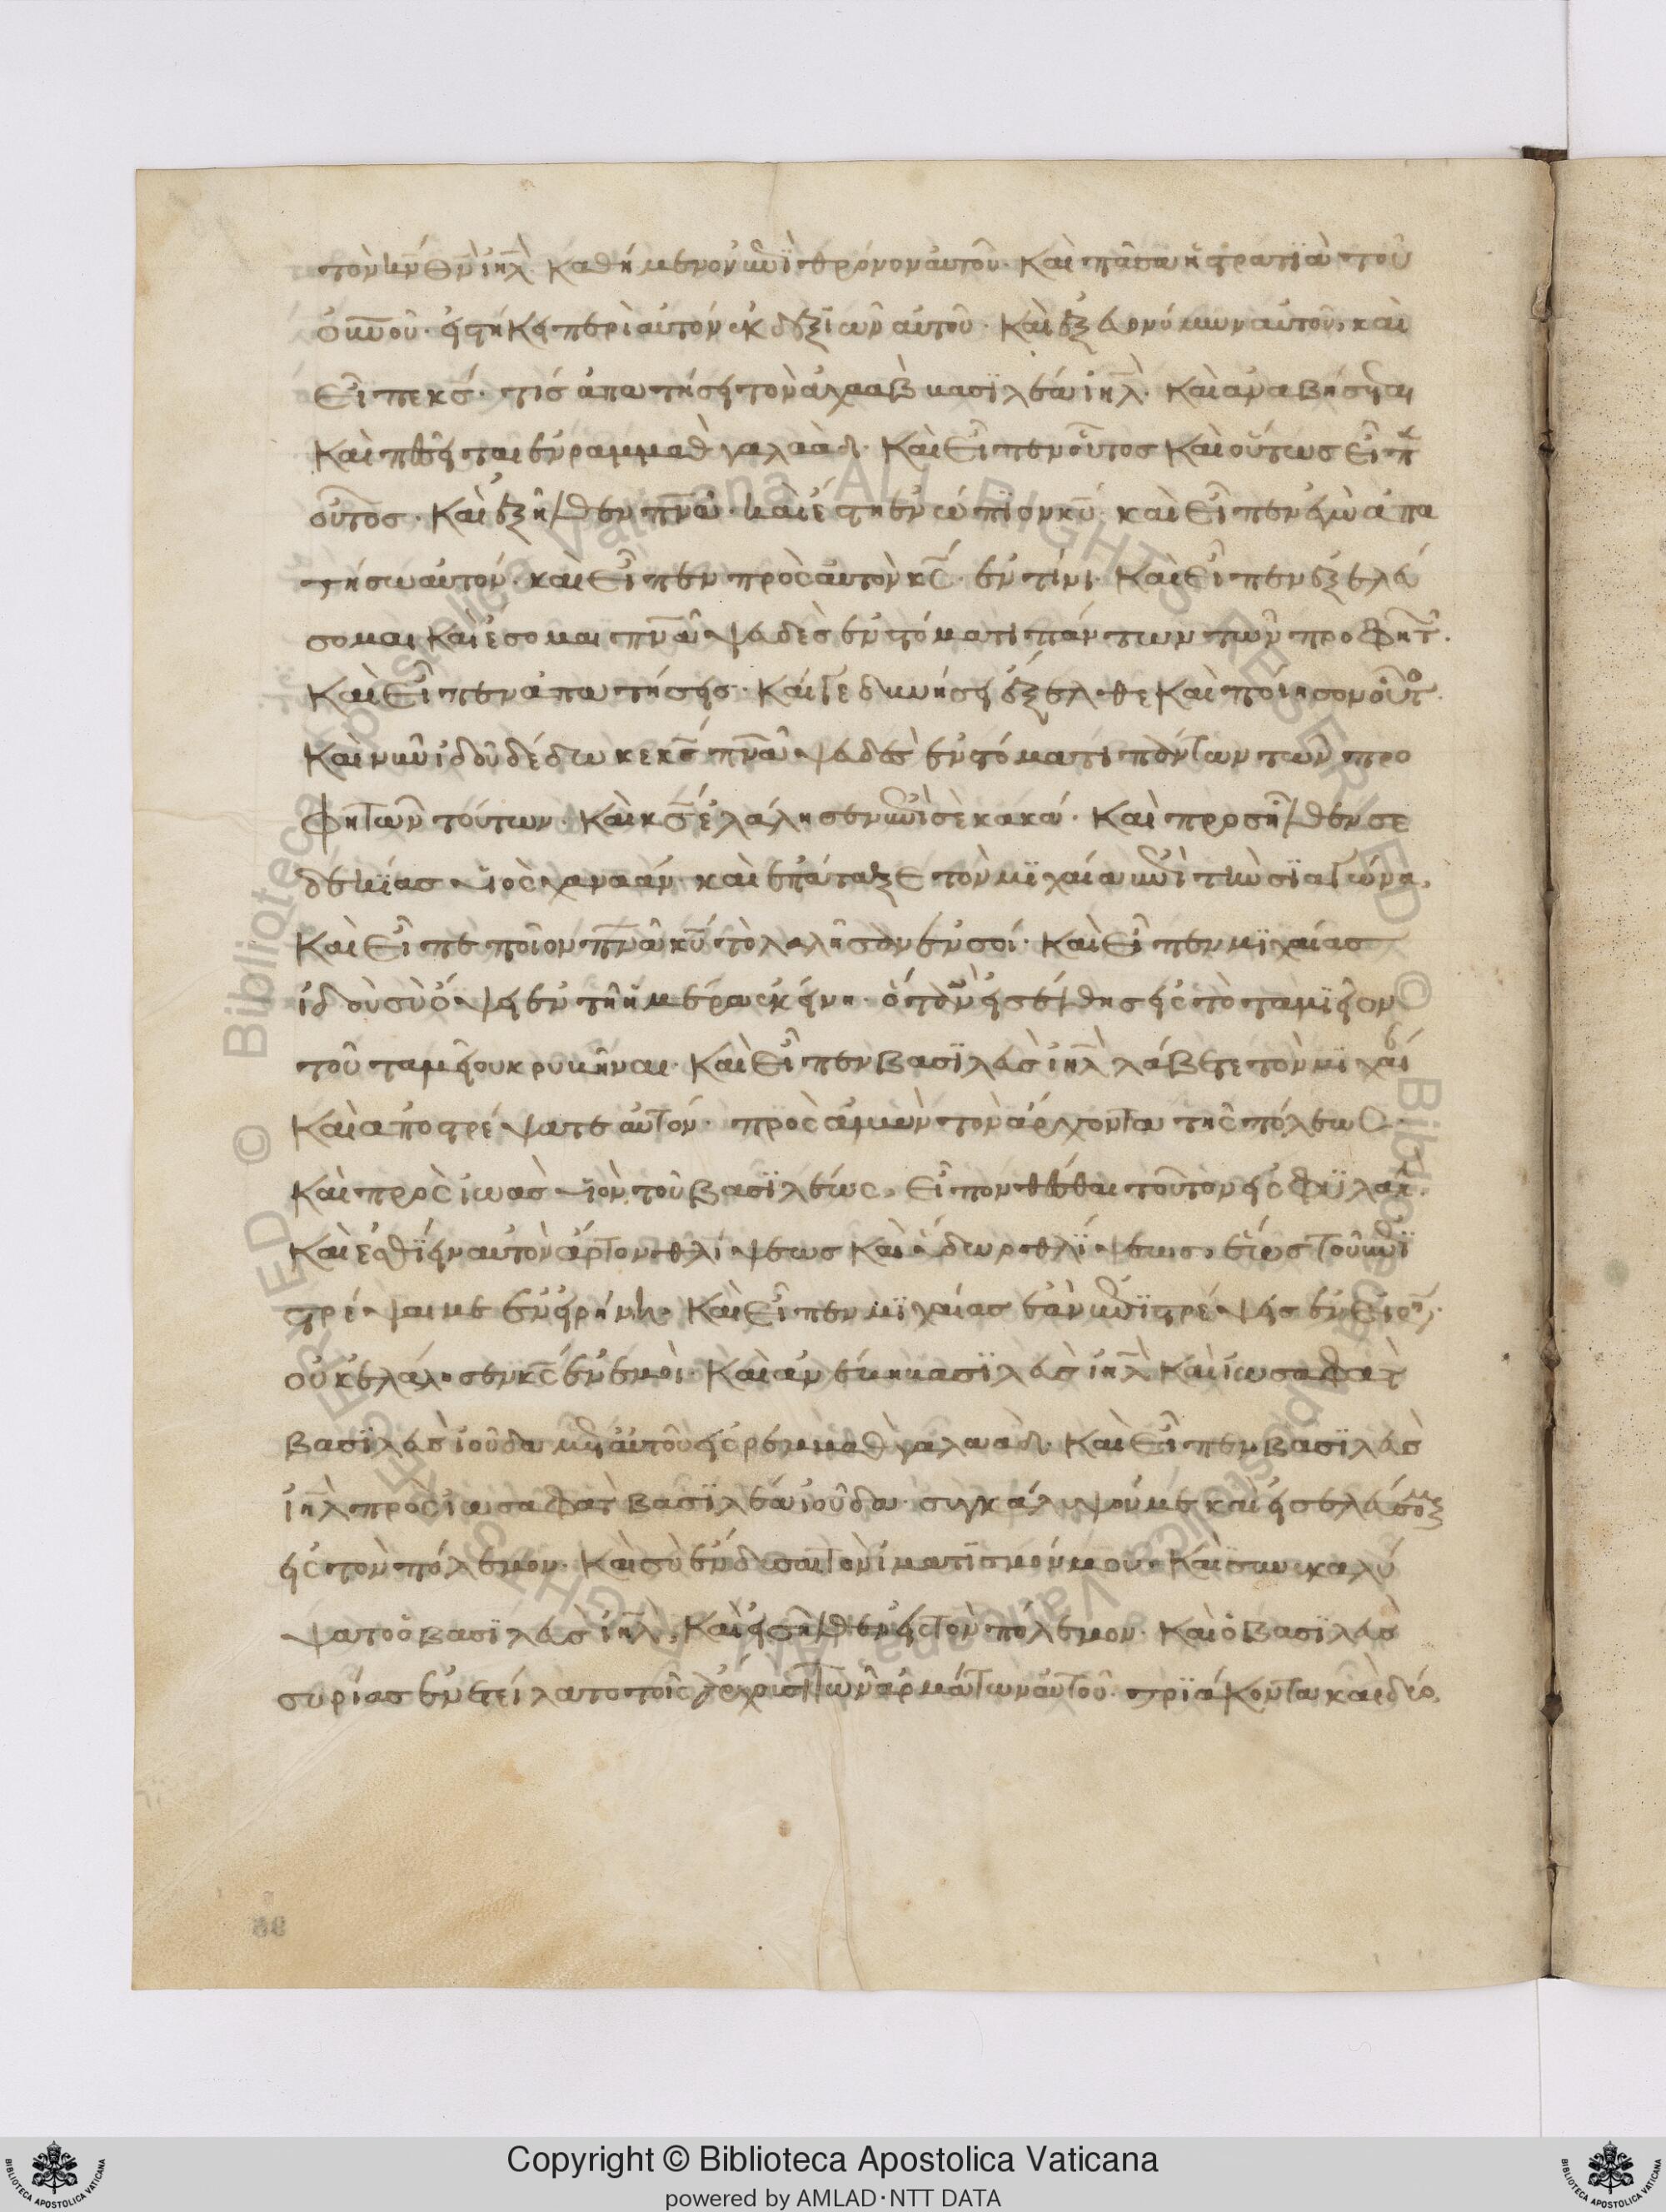 τὸν κν̅ θν̅ ιηλ̅. καθήμενον ἐπὶ θρόνον αὐτοῦ. καὶ πᾶσα ἡ στρατϊὰ τοῦ
οὐνου. ἑστήκει περὶ αὐτὸν ἐκ δεξιῶν αὐτοῦ. καὶ ἐξ εὐονύμων αὐτοῦ, καὶ
εἶπε κς̅. τίς ἀπατήσει τὸν ἀχαὰβ βασϊλέα ιηλ̅. καὶ ἀναβήσεται
καὶ πεσεῖται ἐν ραμμὰθ γαλαάδ. καὶ εἶπεν οὗτος καὶ οὕτως εἶπ
οὗτος. καὶ ἐξῆλθεν πνᾶ. καὶ ἔστη ἐνώπϊον κυ̅. καὶ εἶπεν ἐγὼ ἀπα
τήσω αὐτόν. καὶ εἶπεν πρὸς αὐτὸν κς̅. ἐν τίνι. καὶ εἶπεν ἐξελεύ
σομαι καὶ ἔσομαι πνᾶ ψευδὲς ἐν στόματι πάντων τῶν προφητ.
καὶ εἶπεν ἀπατήσεις. καί γε δυνήσει ἔξελθε καὶ ποίησον οὕτ.
καὶ νῦν ἰδοῦ δέδωκε κς̅ πνᾶ ψευδὲς ἐν στόματι πάντων τῶν προ
φητῶν τούτων. καὶ κς̅ ἐλάλησεν ἐπὶ σὲ κακά. καὶ προσῆλθεν σε
δεκϊας υἱὸς χαναάν. καὶ ἐπάταξε τὸν μϊχαία ἐπὶ τὴν σϊαγόνα,
καὶ εἶπε ποῖον πνᾶ κυ̅ τὸ λαλῆσαν ἐν σοί. καὶ εἶπεν μϊχαίας
ἰδοὺ σὺ ὄψει ἐν τῇ ἡμέρα ἐκείνη. ὅταν εἰσέλθης εἰς τὸ ταμϊεῖον
τοῦ ταμείου κρυβῆναι. καὶ εἶπεν βασϊλεὺς ιηλ̅ λάβετε τὸν μϊχαί
καὶ ἀποστρέψατε αὐτόν. πρὸς ἀμὼν τὸν ἄρχοντα τῆς πόλεως
καὶ πρὸς ἰωὰς υἱὸν τοῦ βασϊλέως, εἶπον θέσθαι τοῦτον εἰς φϋλακ.
καὶ ἐσθΐειν αὐτὸν ἄρτον θλίψεως καὶ ὕδωρ θλΐψεως, ἕως τοῦ ἐπϊ
στρέψαι με ἐν εἰρήνη. καὶ εἶπεν μϊχαίας ἐὰν ἐπϊστρέψεις ἐν εἰρ.
οὐκ ἐλάλησεν κς̅ ἐν ἐμοί. καὶ ἀνέβη βασϊλεὺς ιηλ̅ καὶ ἰωσαφὰτ
βασϊλεὺς ἰοῦδα μετ αὐτοῦ εἰς ρεμμὰθ γαλαάδ. καὶ εἶπεν βασϊλεὺς
ιηλ̅ πρὸς ἰωσαφὰτ βασϊλέα ἰοῦδα. συγκάλυψόν με καὶ εἰσελεύσομαι
εἰς τὸν πόλεμον. καὶ σὺ ἔνδυσαι τὸν ἱματϊσμόν μου. καὶ συνεκαλύ
ψατο ὁ βασϊλεὺς ιηλ̅, καὶ εἰσῆλθεν εἰς τὸν πόλεμον. καὶ ὁ βασϊλεὺς
συρίας ἐνετείλατο τοῖς ἄρχουσι τῶν ἁρμάτων αὐτοῦ. τρϊάκοντα καὶ δύο,